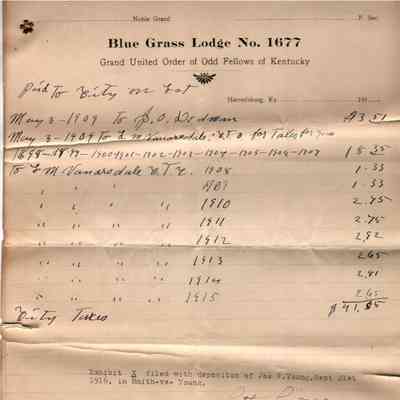 Noble Grand P. Sec.
Blue Grass Lodge No. 1677
Grand United Order of Odd Fellows of Kentucky
Paid To City on Lot
Harrodsburg, Ky. 191
May 3-1909 to J. O. Dedman $3.51
May 3-1909 To L M Vanarsdale for Taxes for
1898-1899-1900-1901-1902-1903-1904-1905-1906-1907 15.35
To L M Vanarsdale C.T.C. 1908 1.33
" " " " 1909 1.33
" " " " 1910 2.75
" " " " 1911 2.75
" " " " 1912 2.92
" " " " 1913 2.65
" " " " 1914 2.81
" " " " 1915 2.65
City Taxes $41.85
Exhibit X filed with depositon of Jas W.Young,Sept 21st
1916, in Smith-vs- Young.